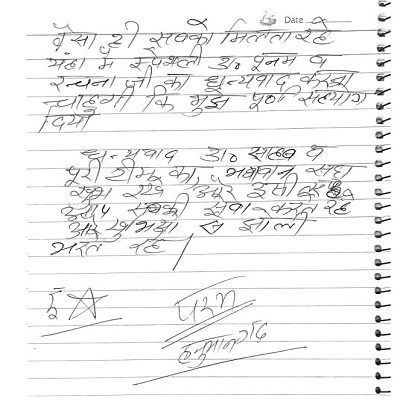 Date
वैसा ही सबको मिलता रहे
यहां मैं स्पेशली डा० पूनम व
रचना जी का धन्यवाद करना
चाहूंगी कि मुझे पूर्ण सहयोग
दिया
धन्यवाद डा० साहब व
पूरी टीम का, भगवान सदा
खुश रखे और इसी तरह
आप सबकी सेवा करते रहे
और खुशियां से झोली
भरते रहे
पवन
हनुमानगढ़